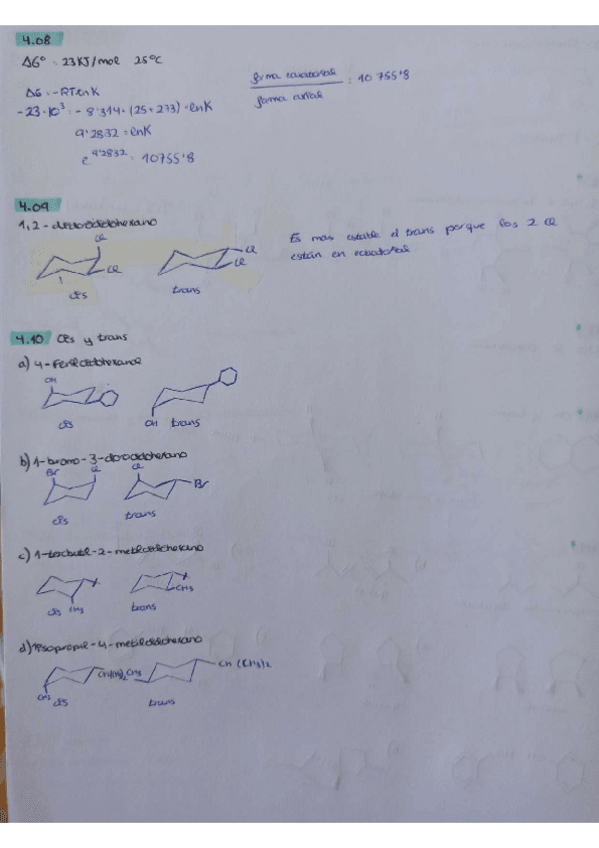 4.08
ΔG° = 23 KJ/mol 25°C
ΔG = -RTlnK
-23·10³ = -8'314·(25+273)·lnK
9'2832 = lnK
e^9'2832 = 10755'8
forma ecuatorial
forma axial
: 10755'8
4.09
1,2-diclorociclohexano
Cl
Cl
cis
Cl
Cl
trans
Es más estable el trans porque los 2 Cl
están en ecuatorial
4.10 Cis y trans
a) 4-Fenilciclohexanol
OH
cis
OH
trans
b) 1-bromo-3-clorociclohexano
Br
Cl
cis
Cl
Br
trans
c) 1-tercbutil-2-metilciclohexano
CH3
cis
CH3
trans
d) 1-isopropil-4-metilciclohexano
CH(CH3)2
CH3
cis
CH3
CH(CH3)2
trans